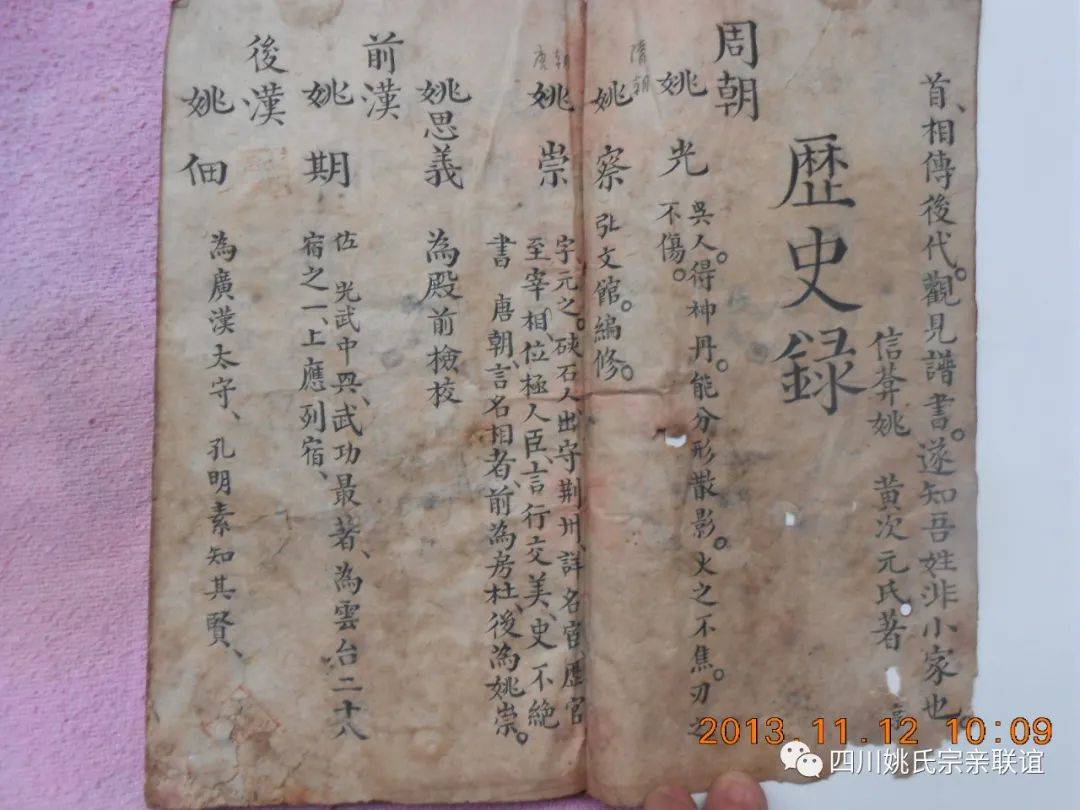 首、相傳後代。觀見譜書。遂知吾姓非小家也
信莽姚 黄次元氏著
歷史録
周朝
姚光 吳人。得神丹。能分形散影。火之不焦。刃之
不傷。
隋朝
姚察 弘文館。編修。
唐朝
姚崇 字元之。硤石人出守荆州、詳名宦、歷官
至宰相、位極人臣、言行交美、史不絶
書 唐朝、言名相者、前為房杜、後為姚崇。
姚思義 為殿前檢校
前漢
姚期 佐 光武中興、武功最著、為雲台二十八
宿之一、上應列宿、
後漢
姚佃 為廣漢太守、孔明素知其賢、
2013.11.12 10:09
四川姚氏宗亲联谊